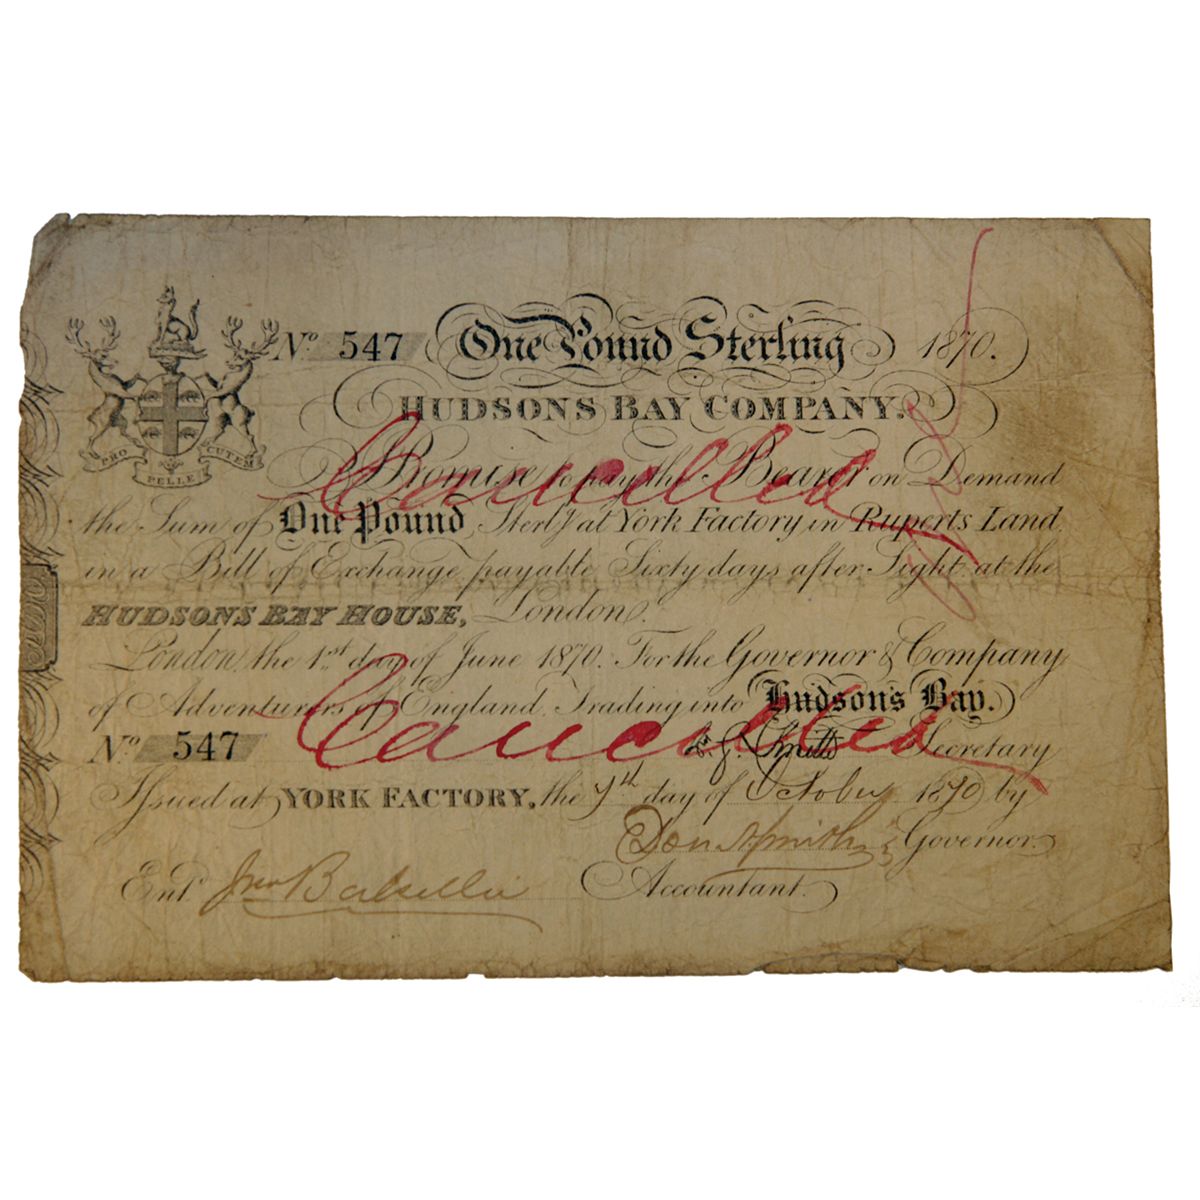 No. 547 One Pound Sterling 1870.
HUDSONS BAY COMPANY.
PRO PELLE CUTEM
Cancelled
Promise to pay the Bearer on Demand
the Sum of One Pound Sterlg. at York Factory in Ruperts Land
in a Bill of Exchange payable Sixty days after Sight at the
HUDSONS BAY HOUSE, London.
London the 1st day of June 1870. For the Governor & Company
of Adventurers of England Trading into Hudson's Bay.
Cancelled
No. 547 Smith Secretary
Issued at YORK FACTORY, the 7th day of October 1870 by
Don A Smith Governor.
Entd. Jno Balsillie Accountant.